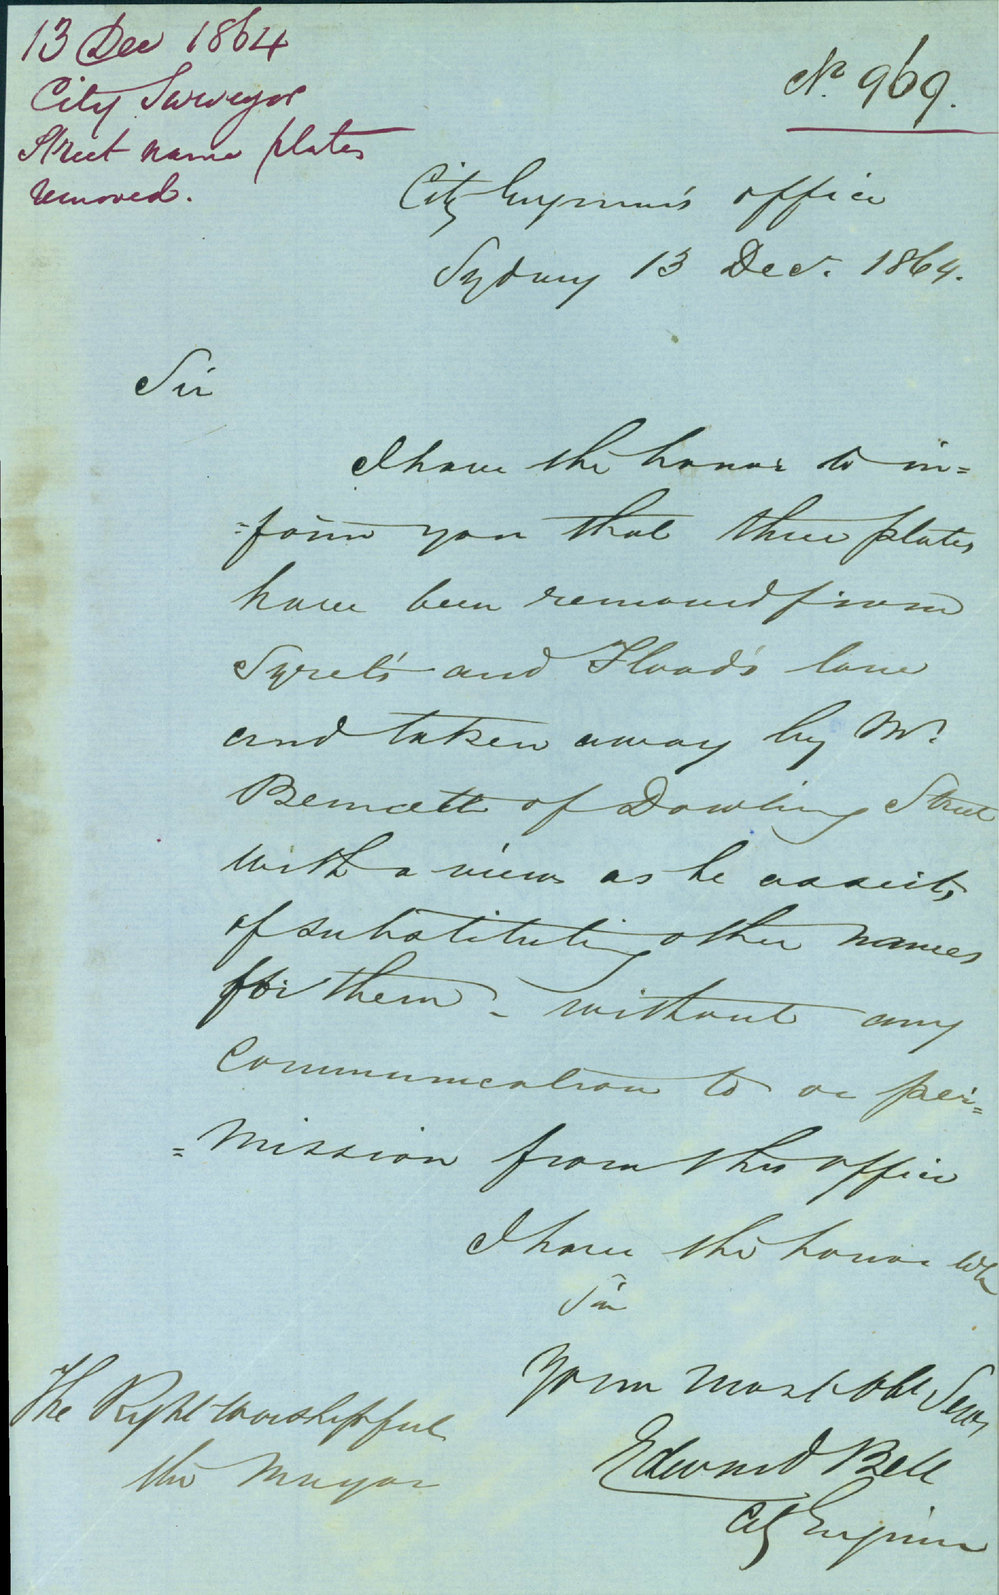 13 Dec 1864
City Surveyor
Street name plates
removed.
No. 969.
City Engineer's office
Sydney 13 Dec. 1864.
Sir
I have the honor to in=
=form you that three plates
have been removed from
Syret's and Flood's lane
and taken away by Mr.
Bennett of Dowling Street
with a view as he asserts,
of substituting other names
for them - without any
communication to or per=
=mission from this office
I have the honor to be
Sir
Your most obt Serv
Edward Bell
City Engineer
The Right Worshipful
the Mayor